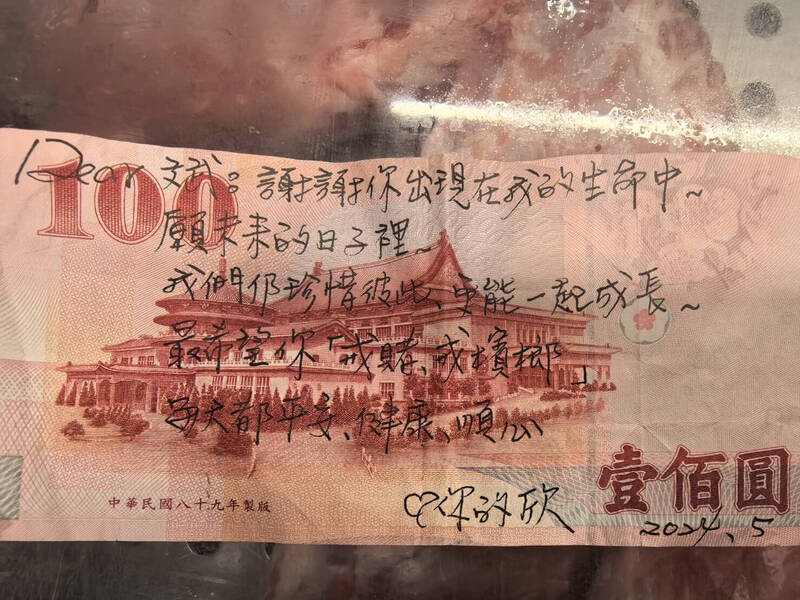 100
Dear 文斌。謝謝你出現在我的生命中~
願未來的日子裡~
我們仍珍惜彼此、更能一起成長~
最希望你「戒賭、戒檳榔」
每天都平安、健康、順心
♡你的欣
2024、5
壹佰圓
中華民國八十九年製版